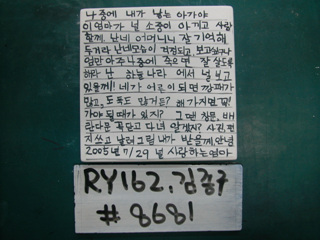 나중에 내가 낳는 아가야
이 엄마가 널 소중이 아끼고 사랑
할께. 난 네 어머니니 잘 기억해
두거라 난 네모습이 걱정되고, 보고싶구나
엄만 아주 나중에 죽으면 잘 살도록
하라 난 하늘나라 에서 널 보고
있을께!! 네가 어른이 되면 깡패가
많고, 도둑도 많거든? 해 가지면 꼭!
가야 될때가 있지? 그땐 창문,
꼭닫고 다녀 알겠지? 사진, 편
지쓰고 날려 그럼 내가 받을께, 안녕
2005년 7/29 널 사랑하는 엄마
RY162. 김종구
#8681